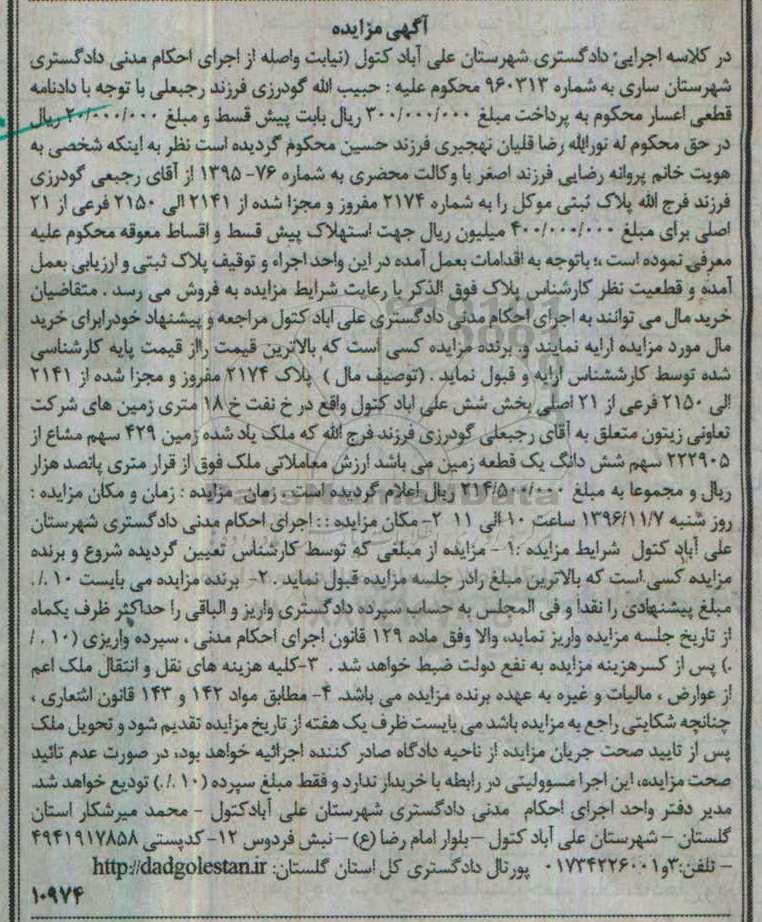 آگهی مزایده
در کلاسه اجرایی دادگستری شهرستان علی آباد کتول (نیابت واصله از اجرای احکام مدنی دادگستری
شهرستان ساری به شماره ۹۶۰۳۱۳ محکوم علیه : حبیب الله گودرزی فرزند رجبعلی با توجه با دادنامه
قطعی اعسار محکوم به پرداخت مبلغ ۳۰۰/۰۰۰/۰۰۰ ریال بابت پیش قسط و مبلغ ۲۰/۰۰۰/۰۰۰ ریال
در حق محکوم له نورالله رضا قلیان تهجیری فرزند حسین محکوم گردیده است نظر به اینکه شخصی به
هویت خانم پروانه رضایی فرزند اصغر با وکالت محضری به شماره ۷۶- ۱۳۹۵ از آقای رجبعی گودرزی
فرزند فرج الله پلاک ثبتی موکل را به شماره ۲۱۷۴ مفروز و مجزا شده از ۲۱۴۱ الی ۲۱۵۰ فرعی از ۲۱
اصلی برای مبلغ ۴۰۰/۰۰۰/۰۰۰ میلیون ریال جهت استهلاک پیش قسط و اقساط معوقه محکوم علیه
معرفی نموده است ،؛ باتوجه به اقدامات بعمل آمده در این واحد اجراء و توقیف پلاک ثبتی و ارزیابی بعمل
آمده و قطعیت نظر کارشناس پلاک فوق الذکر با رعایت شرایط مزایده به فروش می رسد . متقاضیان
خرید مال می توانند به اجرای احکام مدنی دادگستری علی اباد کتول مراجعه و پیشنهاد خودرابرای خرید
مال مورد مزایده ارایه نمایند و. برنده مزایده کسی است که بالاترین قیمت رااز قیمت پایه کارشناسی
شده توسط کارششناس ارایه و قبول نماید . (توصیف مال ) پلاک ۲۱۷۴ مفروز و مجزا شده از ۲۱۴۱
الی ۲۱۵۰ فرعی از ۲۱ اصلی بخش شش علی اباد کتول واقع در خ نفت خ ۱۸ متری زمین های شرکت
تعاونی زیتون متعلق به آقای رجبعلی گودرزی فرزند فرج الله که ملک یاد شده زمین ۴۲۹ سهم مشاع از
۲۲۲۹۰۵ سهم شش دانگ یک قطعه زمین می باشد ارزش معاملاتی ملک فوق از قرار متری پانصد هزار
ریال و مجموعا به مبلغ ۲۱۴/۵۰۰/۰۰۰ ریال اعلام گردیده است . زمان مزایده : زمان و مکان مزایده :
روز شنبه ۱۳۹۶/۱۱/۷ ساعت ۱۰ الی ۱۱ ۲- مکان مزایده : : اجرای احکام مدنی دادگستری شهرستان
علی آباد کتول شرایط مزایده :۱ - مزایده از مبلغی که توسط کارشناس تعیین گردیده شروع و برنده
مزایده کسی است که بالاترین مبلغ رادر جلسه مزایده قبول نماید . ۲- برنده مزایده می بایست ۱۰ ./.
مبلغ پیشنهادی را نقدا و فی المجلس به حساب سپرده دادگستری واریز و الباقی را حداکثر ظرف یکماه
از تاریخ جلسه مزایده واریز نماید، والا وفق ماده ۱۲۹ قانون اجرای احکام مدنی ، سپرده واریزی (۱۰ . /
.) پس از کسرهزینه مزایده به نفع دولت ضبط خواهد شد . ۳-کلیه هزینه های نقل و انتقال ملک اعم
از عوارض ، مالیات و غیره به عهده برنده مزایده می باشد. ۴- مطابق مواد ۱۴۲ و ۱۴۳ قانون اشعاری ،
چنانچه شکایتی راجع به مزایده باشد می بایست ظرف یک هفته از تاریخ مزایده تقدیم شود و تحویل ملک
پس از تایید صحت جریان مزایده از ناحیه دادگاه صادر کننده اجرائیه خواهد بود، در صورت عدم تائید
صحت مزایده، این اجرا مسوولیتی در رابطه با خریدار ندارد و فقط مبلغ سپرده (۱۰ ./.) تودیع خواهد شد.
مدیر دفتر واحد اجرای احکام مدنی دادگستری شهرستان علی آبادکتول - محمد میرشکار استان
گلستان – شهرستان علی آباد کتول – بلوار امام رضا (ع) – نبش فردوس ۱۲- کدپستی ۴۹۴۱۹۱۷۸۵۸
– تلفن:۳و۰۱۷۳۴۲۲۶۰۰۱ پورتال دادگستری کل استان گلستان: http://dadgolestan.ir
۱۰۹۷۴